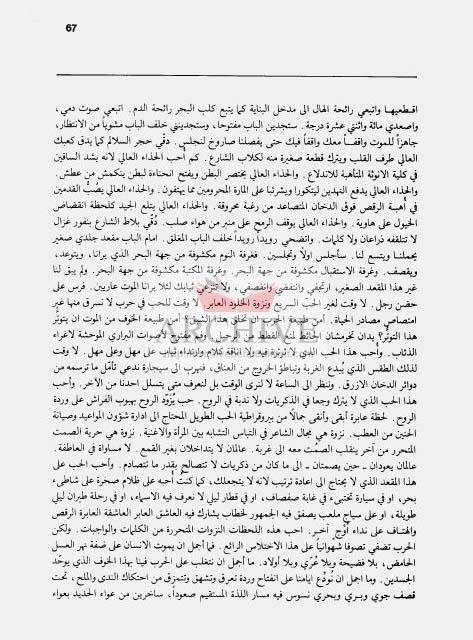 67
اقطعيها واتبعي رائحة الهال الى مدخل البناية كما يتبع كلب البحر رائحة الدم. اتبعي صوت دمي،
واصعدي مائة واثنتي عشرة درجة. ستجدين الباب مفتوحا، وستجديني خلف الباب مشوياً من الانتظار،
جاهزاً للموت واقفاً معك واقفاً فيك حتى يفصلنا صاروخ لنجلس. دقي حجر السلالم كما يدق كعبك
العالي طرف القلب ويترك قطعة صغيرة منه لكلاب الشارع. كم أحب الحذاء العالي لانه يشد الساقين
في كلية الانوثة المتأهبة للاندلاع. والحذاء العالي يختصر البطن ويفتح انحناءة لبطن ينكمش من عطش.
والحذاء العالي يدفع النهدين ليتكورا ويشرئبا على المارة المحرومين مما يهتفون. والحذاء العالي يصُبُّ القدمين
في أهبة الرقص فوق الدخان المتصاعد من رغبة محروقة. والحذاء العالي يتلع الجيد كلحظة انقضاض
الخيول على هاوية. والحذاء العالي يوقف الرمح على منبر من هواء صلب. دُقّي بلاط الشارع بنفور غزال
لا تتلقفه ذراعان ولا كلمات. واتضحي رويداً رويداً خلف الباب المغلق. امام الباب مقعد جلدي صغير
يحملنا ويتسع لنا. سأجلس اولاً وتجلسين. فغرفة النوم مكشوفة من جهة البحر الذي يرانا، ويتوعد،
ويقصف. وغرفة الاستقبال مكشوفة من جهة البحر. وغرفة المكتبة مكشوفة من جهة البحر. ولم يبق لنا
غير هذا المقعد الصغير، ارتجفي وانتفضي وانقصفي، ولا تنزعي ثيابك لئلا يرانا الموت عاريين. فرس على
حضن رجل. لا وقت لغير الحبّ السريع ونزوة الخلود العابر. لا وقت للحب في حرب لا نسرق منها غير
امتصاص مصادر الحياة. أمن طبيعة الحرب ان تخلق هذا الشبق؟ أمن طبيعة الخوف من الموت ان يتوتَّر
هذا التوتُّر؟ يدان تخرمشان الحائط لمنع القطط من الزعيق. وفم مفتوح لأصوات البراري الموحشة لاغراء
الذئاب. وأحب هذا الحب الذي لا ثرثرة فيه ولا اناقة كلام وارتداء ثياب على مهل وعلى مهل. لا وقت
لذلك الطقس الذي يُبدع الغربة وتباطؤ الخروج من العناق، فنهرب الى سيجارة ندعي تأمّل ما ترسمه من
دوائر الدخان الازرق. وننظر الى الساعة لا لنرى الوقت بل لنعرف متى يتسلل احدنا من الآخر. وأحب
هذا الحب الذي لا يترك وجعا في الذكريات ولا ندبة في الروح. حب يُزوّد الروح بهبوب الفراش على وردة
الروح. لحظة عابرة أبقى وأنقى جمالاً من بيروقراطية الحب الطويل المحتاج الى ادارة شؤون المواعيد وصيانة
الحنين من العطب. نزوة هي مجال الشاعر في التباس التشابه بين المرأة والاغنية. نزوة هي حرية الصمت
المتحرر من آخر ينقلب الصمت معه الى غربة. عالمان لا يتداخلان بغير القمع. لا مساواة في العاطفة.
عالمان يعودان ـ حين يصمتان ـ الى ما كان من ذكريات لا تتصالح بقدر ما تتصادم. وأحب الحب على
هذا المقعد الذي لا يحتاج الى اعادة ترتيب لانه لا يتجعلك، كما كنت أحبه على ظلام صخرة على شاطىء
بحر، او في سيارة تختبىء في غابة صفصاف، او في قطار ليلي لا نعرف فيه الاسماء، او في رحلة طيران ليلي
طويلة، او على سياج ملعب يصفق فيه الجمهور لخطاب يشارك فيه العاشق العابر العاشقة العابرة الرقص
والهتاف على نداء أوْج آخر. احب هذه اللحظات النزوات المتحررة من الكلمات والواجبات. ولكن
الحرب تضفي تصوفا شهوانياً على هذا الاختلاس الرائع. فما أجمل ان يموت الانسان على ضفة نهر العسل
الحامض، بلا فضيحة وبلا عُرْي وبلا أولاد. ما أجمل ان نتغلب على الحرب فينا بهذا الخوف الذي يوحّد
الجسدين. وما اجمل ان نُودّع ايامنا على انفتاح وردة تعرق وتشهق وتتمزق من احتكاك الندى والملح، تحت
قصف جوي وبري وبحري نسوس فيه مسار اللذة المستقيم صعوداً، ساخرين من عواء الحديد بعواء
ARCHIVE